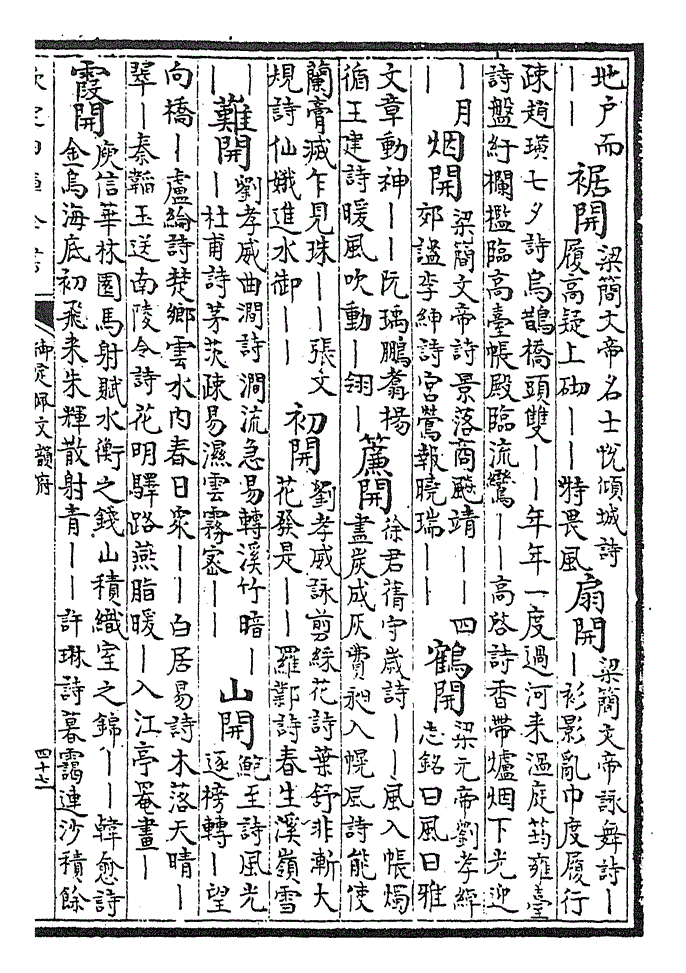 地户而
｜｜
裾開
梁簡文帝名士恱傾城詩
履高疑上砌｜｜特畏風
扇開
梁簡文帝詠舞詩｜
｜衫影亂巾度履行
疎趙璜七夕詩烏鵲橋頭雙｜｜年年一度過河来温庭筠雍臺
詩盤紆欄檻臨高臺帳殿臨流鸞｜｜高啓詩香帶爐烟下光迎
｜月
｜｜
烟開
梁簡文帝詩景落商飇靖｜｜四
郊謐李紳詩宮鶯報曉瑞｜｜
鶴開
梁元帝劉孝綽
志銘曰風曰雅
文章動神｜｜阮瑀鵬翥揚
循王建詩暖風吹動｜翎｜
簾開
徐君蒨守歲詩｜｜風入帳燭
盡炭成灰費昶入幌風詩能使
蘭膏滅乍見珠｜｜張文
規詩仙娥進水御｜｜
初開
劉孝威詠剪綵花詩葉舒非漸大
花發是｜｜羅鄴詩春生溪嶺雪
｜
｜
難開
劉孝威曲澗詩澗流急易轉溪竹暗｜
｜杜甫詩茅茨疎易濕雲霧宻｜｜
山開
鮑至詩風光
逐榜轉｜望
向橋｜盧綸詩楚鄉雲水内春日衆｜｜白居易詩木落天晴｜
翠｜秦韜玉送南陵令詩花明驛路燕脂暖｜入江亭罨畫｜
霞開
庾信華林園馬射賦水衡之錢山積織室之錦｜｜韓愈詩
金烏海底初飛来朱輝散射青｜｜許琳詩暮靄連沙積餘
御定佩文韻府
四十七